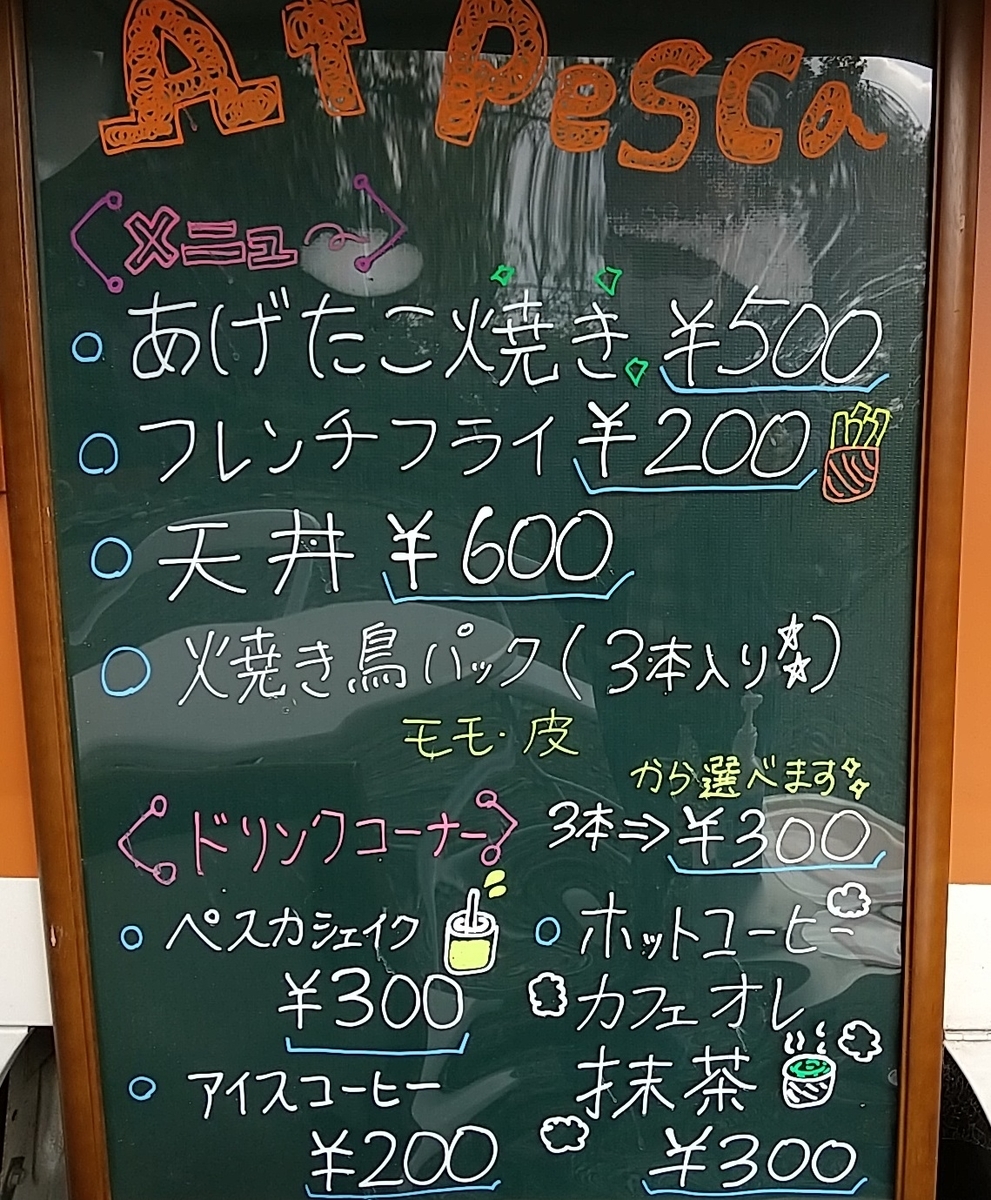 AT PeSCa
メニュー
あげたこ焼き ¥500
フレンチフライ ¥200
天丼 ¥600
焼き鳥パック(3本入り☆☆)
モモ・皮
から選べます
3本⇒¥300
ドリンクコーナー
ペスカシェイク
¥300
アイスコーヒー
¥200
ホットコーヒー
カフェオレ
抹茶
¥300